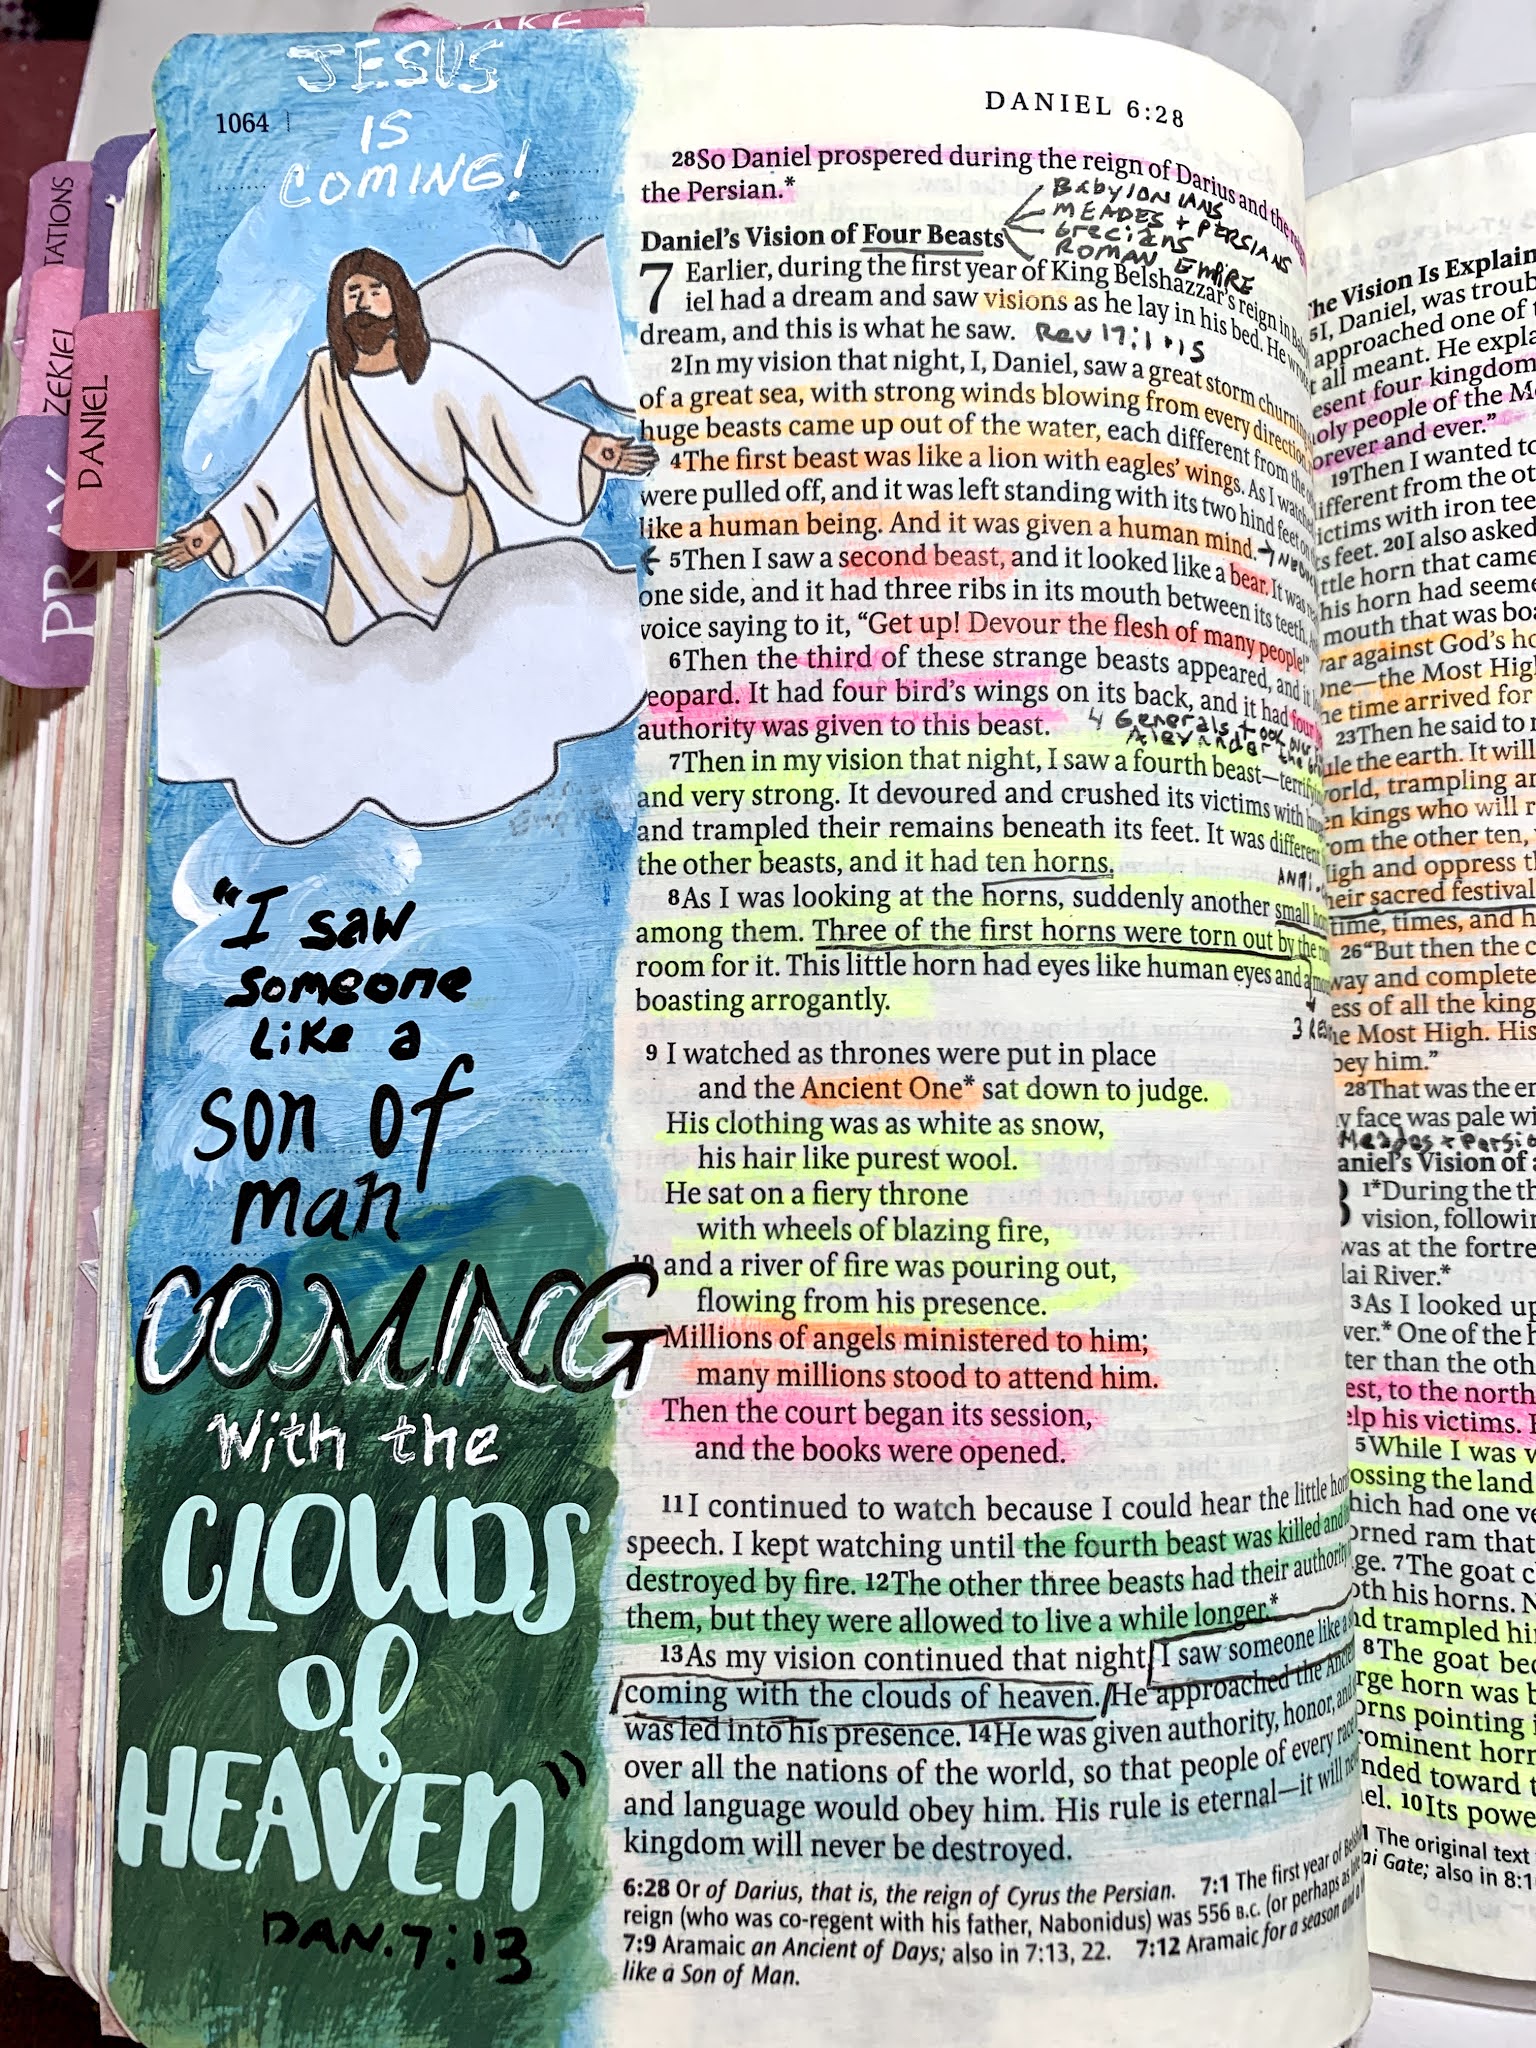 JESUS
IS
COMING!
1064
TATIONS
ZEKIEL
DANIEL
PRAY
"I saw
someone
like a
son of
man
COMING
with the
CLOUDS
of
HEAVEN"
DAN. 7:13
DANIEL 6:28
28So Daniel prospered during the reign of Darius and the
the Persian.*
BabylONIANS
MEADES + PERSIANS
Grecians
ROMAN EMPIRE
Daniel's Vision of Four Beasts
7 Earlier, during the first year of King Belshazzar's reign in
iel had a dream and saw visions as he lay in his bed. He
dream, and this is what he saw. Rev 17:1+15
2In my vision that night, I, Daniel, saw a great storm churning
of a great sea, with strong winds blowing from every direction
huge beasts came up out of the water, each different from the
4The first beast was like a lion with eagles' wings. As I watched
were pulled off, and it was left standing with its two hind feet on
like a human being. And it was given a human mind.
5Then I saw a second beast, and it looked like a bear. It was
one side, and it had three ribs in its mouth between its teeth.
voice saying to it, "Get up! Devour the flesh of many people!"
6Then the third of these strange beasts appeared, and it
eopard. It had four bird's wings on its back, and it had four
authority was given to this beast. 4 Generals took over
Alexander the
7Then in my vision that night, I saw a fourth beast—terrifyin
and very strong. It devoured and crushed its victims with
and trampled their remains beneath its feet. It was different
the other beasts, and it had ten horns.
ANTI
8As I was looking at the horns, suddenly another small
among them. Three of the first horns were torn out by the
room for it. This little horn had eyes like human eyes and a
boasting arrogantly.
3
9 I watched as thrones were put in place
and the Ancient One* sat down to judge.
His clothing was as white as snow,
his hair like purest wool.
He sat on a fiery throne
with wheels of blazing fire,
10 and a river of fire was pouring out,
flowing from his presence.
Millions of angels ministered to him;
many millions stood to attend him.
Then the court began its session,
and the books were opened.
11I continued to watch because I could hear the little
speech. I kept watching until the fourth beast was killed and
destroyed by fire. 12The other three beasts had their authority
them, but they were allowed to live a while longer.*
13As my vision continued that night, I saw someone like a
coming with the clouds of heaven. He approached the Ancient
was led into his presence. 14He was given authority, honor, and
over all the nations of the world, so that people of every race
and language would obey him. His rule is eternal—it will
kingdom will never be destroyed.
6:28 Or of Darius, that is, the reign of Cyrus the Persian. 7:1 The first year of
reign (who was co-regent with his father, Nabonidus) was 556 B.C. (or perhaps as
7:9 Aramaic an Ancient of Days; also in 7:13, 22. 7:12 Aramaic for a season and a
like a Son of Man.
he Vision Is Explain
5I, Daniel, was troub
approached one of
all meant. He expla
esent four kingdom
oly people of the M
orever and ever."
19Then I wanted to
ifferent from the ot
ictims with iron tee
s feet. 20I also asked
ttle horn that came
his horn had seeme
mouth that was boa
ar against God's ho
ne—the Most High
he time arrived for
23Then he said to
le the earth. It will
orld, trampling an
n kings who will r
om the other ten,
igh and oppress t
eir sacred festival
time, times, and h
26"But then the c
way and complete
ess of all the king
he Most High. His
bey him."
28That was the en
y face was pale wi
Meades + Persi
aniel's Vision of
1*During the th
vision, followin
was at the fortre
lai River.*
3As I looked up
ver.* One of the
ter than the oth
est, to the north
elp his victims.
5While I was
ossing the land
hich had one ve
orned ram that
ge. 7The goat c
oth his horns. N
nd trampled hi
8The goat bec
rge horn was b
orns pointing i
ominent horn
nded toward t
el. 10Its powe
1 The original text
ai Gate; also in 8:1